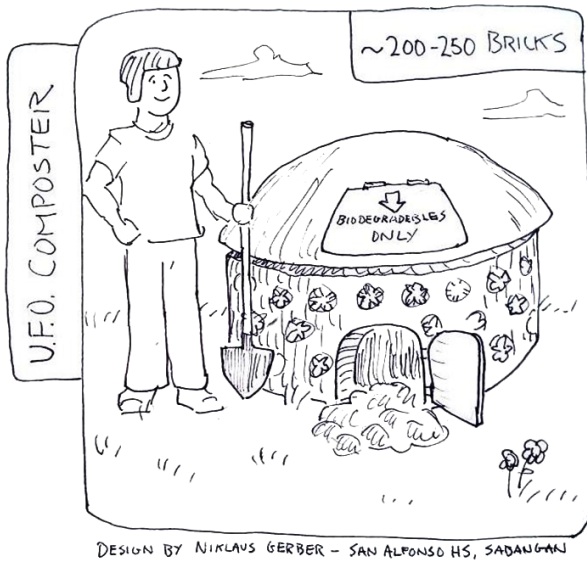 U.F.O. COMPOSTER
~200-250 BRICKS
BIODEGRADEIBLES
ONLY
DESIGN BY NIKLAUS GERBER - SAN ALFONSO HS, SADANGAN